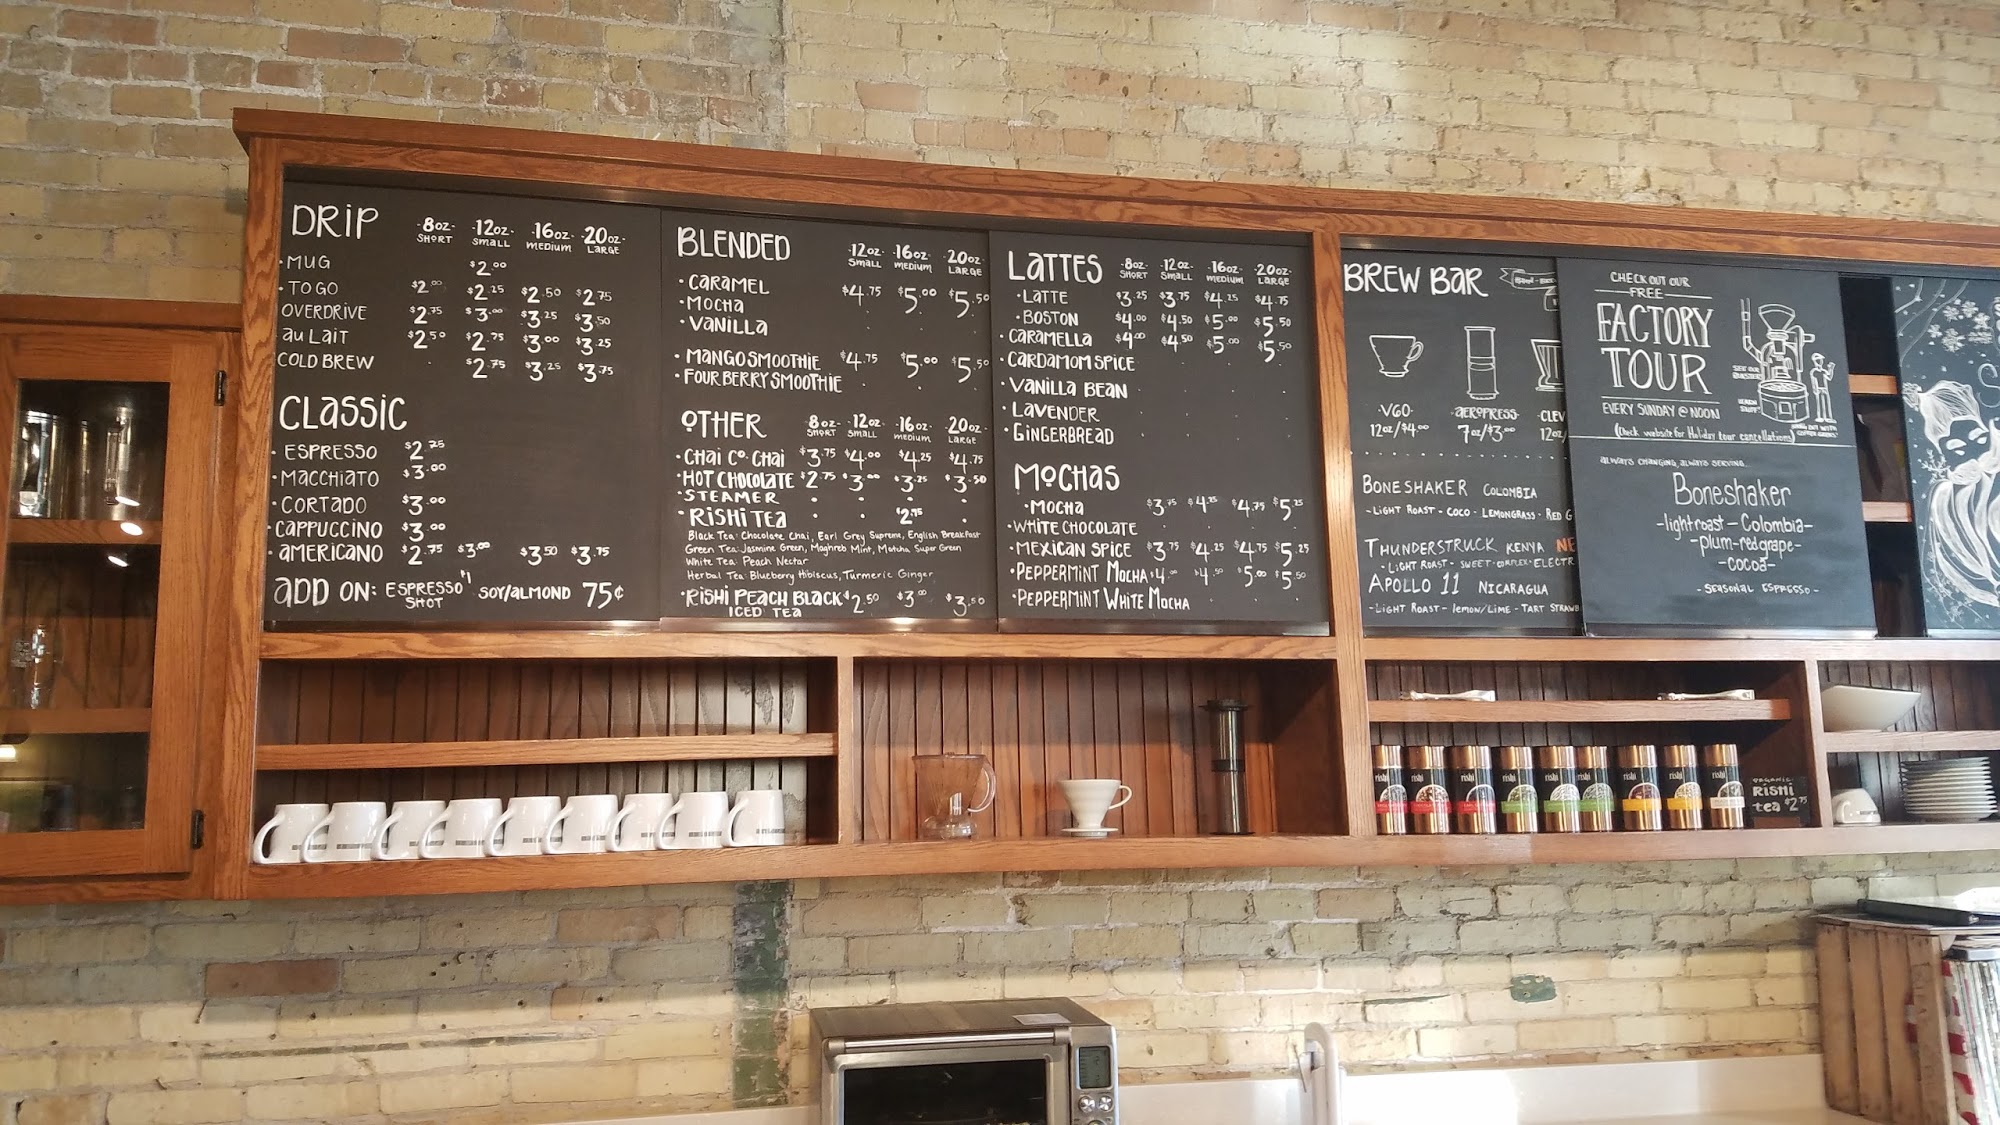 DRIP -8oz- -12oz- -16oz- -20oz-
SHORT SMALL MEDIUM LARGE
• MUG $2.00
• TO GO $2.00 $2.25 $2.50 $2.75
OVERDRIVE $2.75 $3.00 $3.25 $3.50
au LAIT $2.50 $2.75 $3.00 $3.25
COLD BREW $2.75 $3.25 $3.75
CLASSIC
• ESPRESSO $2.75
• MACCHIATO $3.00
• CORTADO $3.00
• CAPPUCCINO $3.00
• AMERICANO $2.75 $3.00 $3.50 $3.75
ADD ON: ESPRESSO SHOT $1 SOY/ALMOND 75¢
BLENDED -12oz- -16oz- -20oz-
SMALL MEDIUM LARGE
• CARAMEL $4.75 $5.00 $5.50
• MOCHA
• VANILLA
• MANGO SMOOTHIE $4.75 $5.00 $5.50
• FOUR BERRY SMOOTHIE
OTHER -8oz- -12oz- -16oz- -20oz-
SHORT SMALL MEDIUM LARGE
• CHAI CO. CHAI $3.75 $4.00 $4.25 $4.75
• HOT CHOCOLATE $2.75 $3.00 $3.25 $3.50
• STEAMER
• RISHI TEA $2.75
Black Tea: Chocolate Chai, Earl Grey Supreme, English Breakfast
Green Tea: Jasmine Green, Maghreb Mint, Matcha Super Green
White Tea: Peach Nectar
Herbal Tea: Blueberry Hibiscus, Turmeric Ginger
• RISHI PEACH BLACK $2.50 $3.00 $3.50
ICED TEA
LATTES -8oz- -12oz- -16oz- -20oz-
SHORT SMALL MEDIUM LARGE
• LATTE $3.25 $3.75 $4.25 $4.75
• BOSTON $4.00 $4.50 $5.00 $5.50
• CARAMELLA $4.00 $4.50 $5.00 $5.50
• CARDAMOM SPICE
• VANILLA BEAN
• LAVENDER
• GINGERBREAD
MOCHAS
• MOCHA $3.75 $4.25 $4.75 $5.25
• WHITE CHOCOLATE
• MEXICAN SPICE $3.75 $4.25 $4.75 $5.25
• PEPPERMINT MOCHA $4.00 $4.50 $5.00 $5.50
• PEPPERMINT WHITE MOCHA
BREW BAR
• V60 • AEROPRESS • CLEV
12oz/$4.00 7oz/$3.00 12oz/
BONESHAKER COLOMBIA
- LIGHT ROAST - COCO - LEMONGRASS - RED G
THUNDERSTRUCK KENYA NE
- LIGHT ROAST - SWEET - COMPLEX - ELECTR
APOLLO 11 NICARAGUA
- LIGHT ROAST - LEMON/LIME - TART STRAWB
CHECK OUT OUR
FREE
FACTORY
TOUR
EVERY SUNDAY @ NOON
(Check website for Holiday tour cancellations)
SEE OUR
ROASTER
LEARN
STUFF
ALWAYS CHANGING, ALWAYS SERVING...
Boneshaker
- light roast - Colombia -
- plum - red grape -
- cocoa -
- SEASONAL ESPRESSO -
rishi
rishi
rishi
rishi
rishi
rishi
rishi
rishi
rishi
ORGANIC
Rishi
tea $2.75